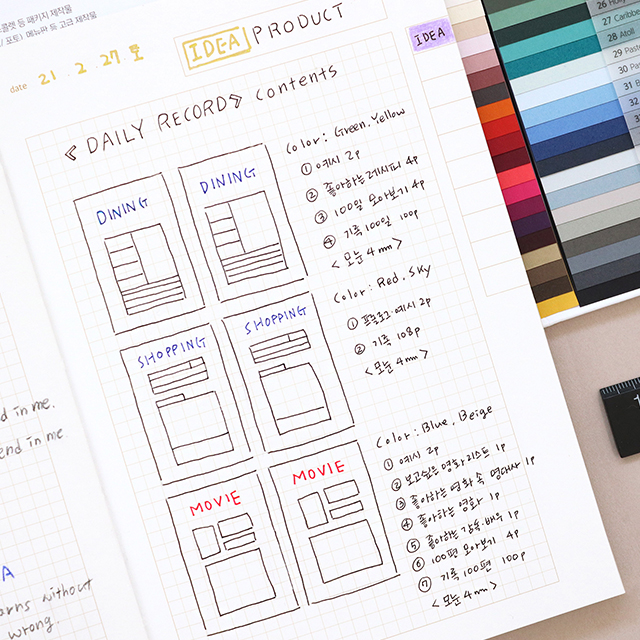 콜렛 등 패키지 제작물
/ 포토1, 메뉴판 등 고급 제작물
date 21. 2. 27 토
IDEA PRODUCT
IDEA
《 DAILY RECORD 》 contents
DINING
DINING
Color : Green. Yellow
① 예시 2p
② 좋아하는 레시피 4p
③ 100일 모아보기 4p
④ 기록 100일 100p
< 모눈 4mm >
SHOPPING
SHOPPING
Color : Red. Sky
① 프롤로그·예시 2p
② 기록 108p
< 모눈 4mm >
MOVIE
MOVIE
Color : Blue, Beige
① 예시 2p
② 보고싶은 영화 리스트 1p
③ 좋아하는 영화 속 명대사 1p
④ 좋아하는 영화 1p
⑤ 좋아하는 감독·배우 1p
⑥ 100편 모아보기 4p
⑦ 기록 100편 100p
< 모눈 4mm >
d in me.
end in me.
A
arns without
wrong.
26
27 Caribbe
28 Atoll
29 Paste
30 Pas
31 B
32
33
1